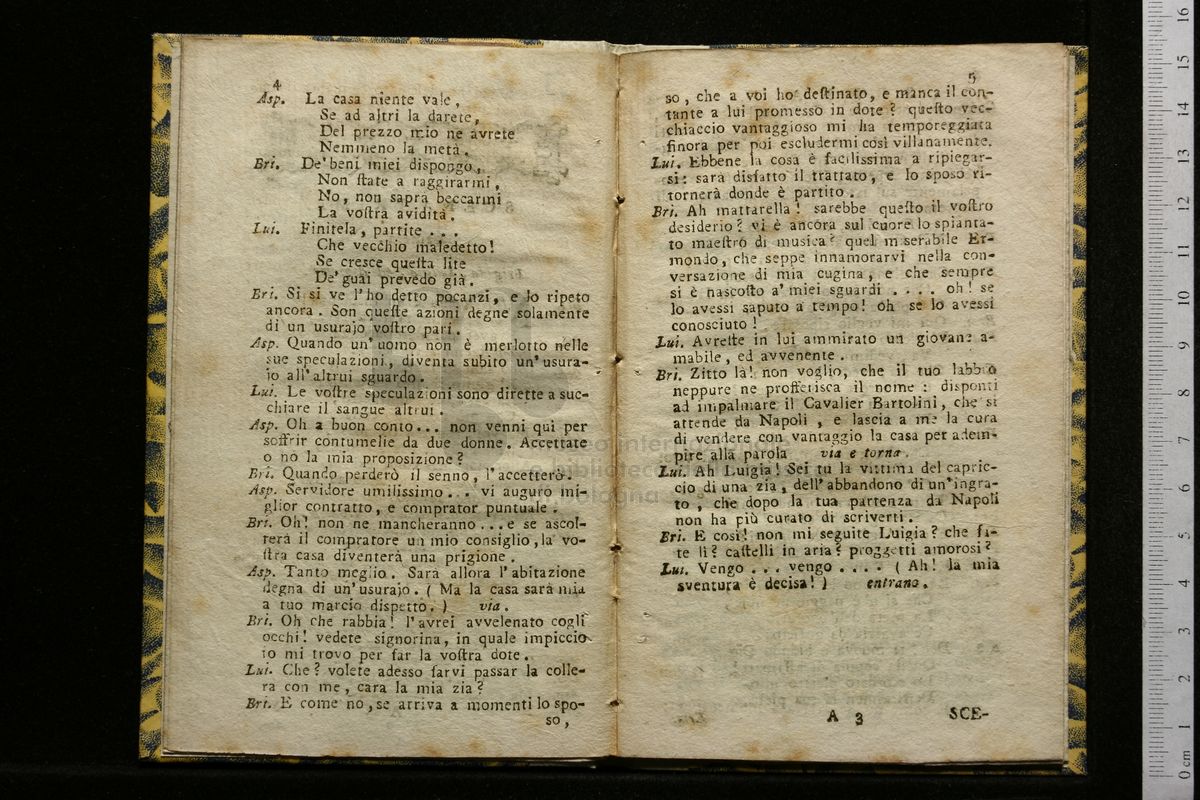 4
Asp. La casa niente vale,
Se ad altri la darete,
Del prezzo mio ne avrete
Nemmeno la metà.
Bri. De' beni miei dispongo,
Non ſtate a raggirarmi,
No, non saprà beccarmi
La voſtra avidità.
Lui. Finitela, partite ...
Che vecchio maledetto!
Se cresce queſta lite
De' guai prevedo già.
Bri. Si si ve l'ho detto pocanzi, e lo ripeto
ancora. Son queſte azioni degne solamente
di un usurajo voſtro pari.
Asp. Quando un' uomo non è merlotto nelle
sue speculazioni, diventa subito un' usura-
io all' altrui sguardo.
Lui. Le voſtre speculazioni sono dirette a suc-
chiare il sangue altrui.
Asp. Oh a buon conto... non venni qui per
soffrir contumelie da due donne. Accettate
o no la mia proposizione?
Bri. Quando perderò il senno, l'accetterò.
Asp. Servidore umilissimo... vi auguro mi-
glior contratto, e comprator puntuale.
Bri. Oh! non ne mancheranno ... e se ascol-
terà il compratore un mio consiglio, la vo-
ſtra casa diventerà una prigione.
Asp. Tanto meglio. Sarà allora l'abitazione
degna di un' usurajo. (Ma la casa sarà mia
a tuo marcio dispetto.) via.
Bri. Oh che rabbia! l'avrei avvelenato cogli
occhi! vedete signorina, in quale impiccio
io mi trovo per far la voſtra dote.
Lui. Che? volete adesso farvi passar la colle-
ra con me, cara la mia zia?
Bri. E come no, se arriva a momenti lo spo-
so,
5
so, che a voi ho deſtinato, e manca il con-
tante a lui promesso in dote? queſto vec-
chiaccio vantaggioso mi ha temporeggiata
finora per poi escludermi così villanamente.
Lui. Ebbene la cosa è facilissima a ripiegar-
si: sarà disfatto il trattato, e lo sposo ri-
tornerà donde è partito.
Bri. Ah mattarella! sarebbe queſto il voſtro
desiderio? vi è ancora sul cuore lo spianta-
to maeſtro di musica? quel miserabile Er-
mondo, che seppe innamorarvi nella con-
versazione di mia cugina, e che sempre
si è nascoſto a' miei sguardi .... oh! se
lo avessi saputo a tempo! oh se lo avessi
conosciuto!
Lui. Avreſte in lui ammirato un giovane a-
mabile, ed avvenente.
Bri. Zitto là! non voglio, che il tuo labbro
neppure ne profferisca il nome: disponti
ad impalmare il Cavalier Bartolini, che si
attende da Napoli, e lascia a me la cura
di vendere con vantaggio la casa per adem-
pire alla parola via e torna.
Lui. Ah Luigia! Sei tu la vittima del capric-
cio di una zia, dell' abbandono di un' ingra-
to, che dopo la tua partenza da Napoli
non ha più curato di scriverti.
Bri. E così! non mi seguite Luigia? che fa-
te lì? caſtelli in aria? proggetti amorosi?
Lui. Vengo ... vengo .... (Ah! la mia
sventura è decisa!) entrano.
A 3 SCE-